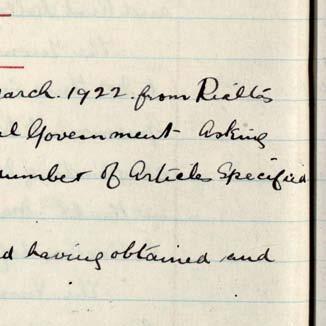 arch. 1922. from Rialto's
al Government Asking
number of Articles Specified
d having obtained and